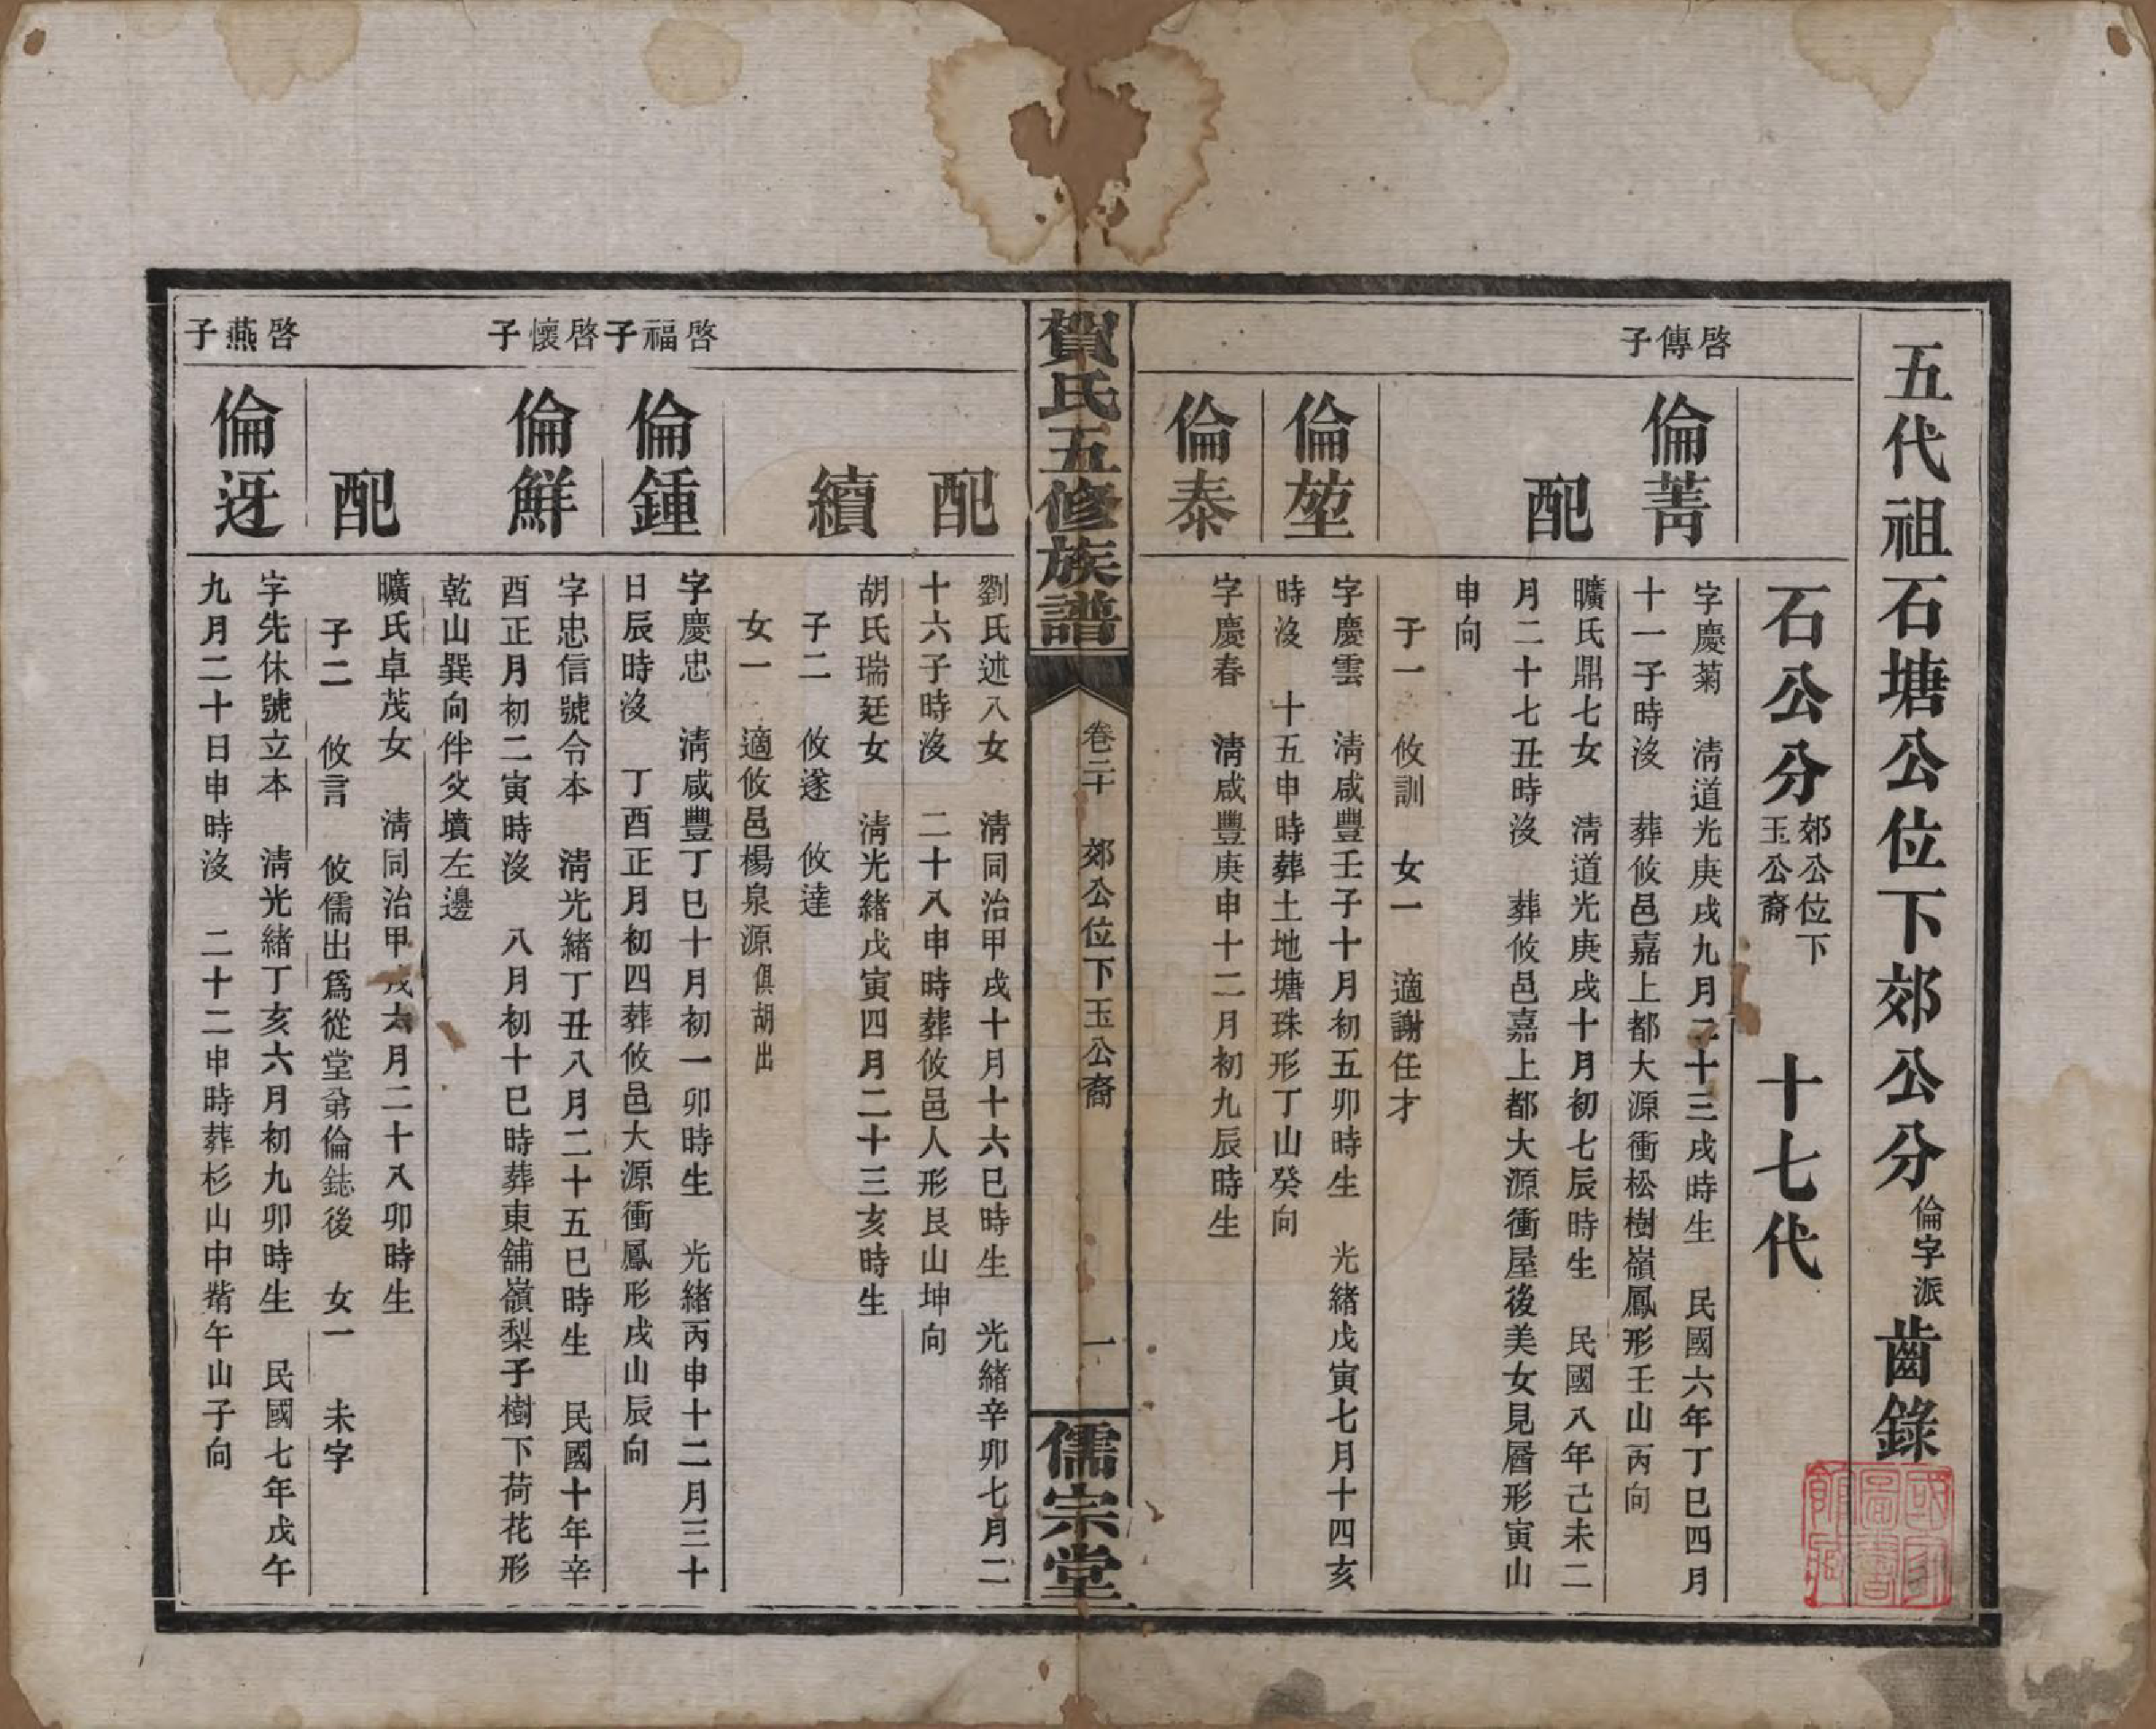 五代祖石塘公位下郊公分倫字派齒錄
石公分郊公位下玉公裔 十七代
啓傳子
倫菁
字慶菊 淸道光庚戌九月二十三戌時生 民國六年丁巳四月
十一子時沒 葬攸邑嘉上都大源衝松樹嶺鳳形壬山丙向
配
曠氏鼎七女 淸道光庚戌十月初七辰時生 民國八年己未二
月二十七丑時沒 葬攸邑嘉上都大源衝屋後美女見層形寅山
申向
子一 攸訓 女一 適謝任才
倫堃
字慶雲 淸咸豐壬子十月初五卯時生 光緒戊寅七月十四亥
時沒 十五申時葬土地塘珠形丁山癸向
倫泰
字慶春 淸咸豐庚申十二月初九辰時生
賀氏五修族譜
卷二十 郊公位下玉公裔 一
儒宗堂
配
劉氏述入女 淸同治甲戌十月十六巳時生 光緒辛卯七月二
十六子時沒 二十八申時葬攸邑人形艮山坤向
續
胡氏瑞廷女 淸光緒戊寅四月二十三亥時生
子二 攸遂 攸達
女一 適攸邑楊泉源俱胡出
啓福子
倫鍾
字慶忠 淸咸豐丁巳十月初一卯時生 光緒丙申十二月三十
日辰時沒 丁酉正月初四葬攸邑大源衝鳳形戌山辰向
啓懷子
倫鮮
字忠信號令本 淸光緒丁丑八月二十五巳時生 民國十年辛
酉正月初二寅時沒 八月初十巳時葬東舖嶺梨子樹下荷花形
乾山巽向伴父墳左邊
配
曠氏卓茂女 淸同治甲戌六月二十八卯時生
子二 攸言 攸儒出爲從堂弟倫鋕後 女一 未字
啓燕子
倫迓
字先休號立本 淸光緒丁亥六月初九卯時生 民國七年戊午
九月二十日申時沒 二十二申時葬杉山中𣥺午山子向
國家圖書館藏